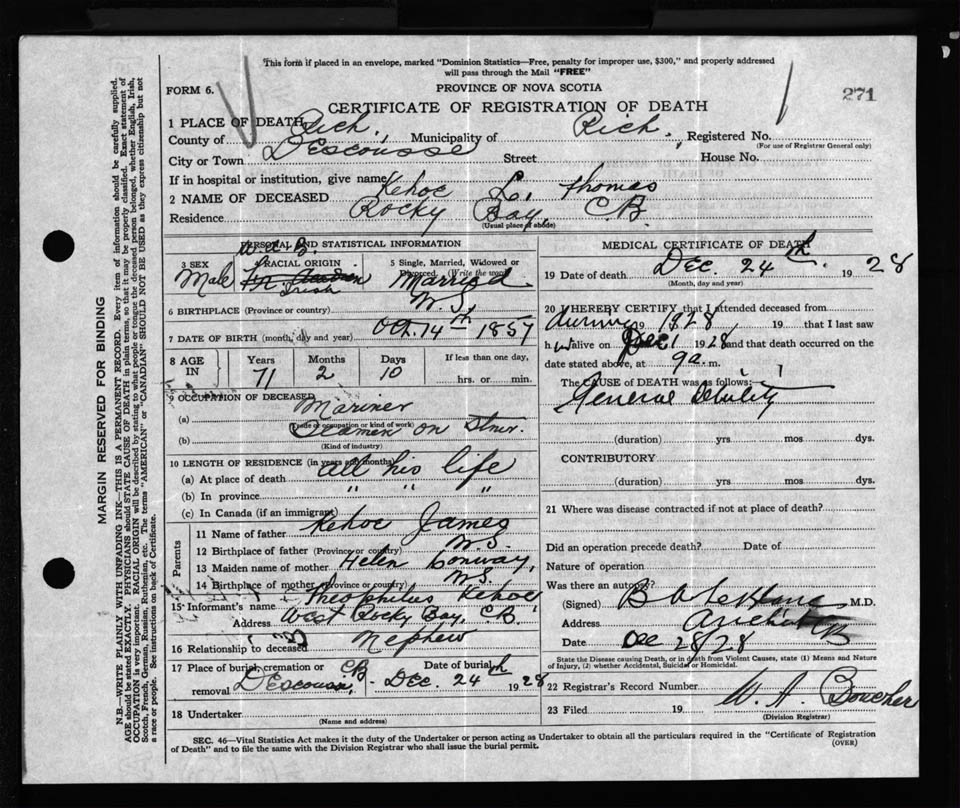 This form if placed in an envelope, marked "Dominion Statistics—Free, penalty for improper use, $300," and properly addressed
will pass through the Mail "FREE"
FORM 6.
PROVINCE OF NOVA SCOTIA
271
CERTIFICATE OF REGISTRATION OF DEATH
1 PLACE OF DEATH
County of Rich, Municipality of Rich. Registered No.
(For use of Registrar General only)
City or Town Descousse Street House No.
If in hospital or institution, give name
2 NAME OF DECEASED Kehoe L, Thomas
Residence Rocky Bay, C.B.
(Usual place of abode)
PERSONAL AND STATISTICAL INFORMATION
3 SEX RACIAL ORIGIN 5 Single, Married, Widowed or
Divorced (Write the word)
Male Irish Married
6 BIRTHPLACE (Province or country) N.S.
7 DATE OF BIRTH (month, day and year) Oct. 14th 1857
8 AGE IN Years Months Days If less than one day,
71 2 10 hrs. or min.
9 OCCUPATION OF DECEASED
(a) Mariner
(Trade or occupation or kind of work)
(b) Seamen on Stmr.
(Kind of industry)
10 LENGTH OF RESIDENCE (in years and months)
(a) At place of death all his life
(b) In province " " "
(c) In Canada (if an immigrant)
Parents
11 Name of father Kehoe James
12 Birthplace of father (Province or country) N.S.
13 Maiden name of mother Helen Conway,
14 Birthplace of mother (Province or country) N.S.
15 Informant's name Theophilus Kehoe
Address West Rocky Bay, C.B.
16 Relationship to deceased Nephew
17 Place of burial, cremation or removal Descousse, CB Date of burial Dec. 24th 1928
18 Undertaker
(Name and address)
MEDICAL CERTIFICATE OF DEATH
19 Date of death Dec. 24th 1928
(Month, day and year)
20 I HEREBY CERTIFY that I attended deceased from
during 19 1828 19 that I last saw
h im alive on Dec 1 1928 and that death occurred on the
date stated above, at 9 a. m.
The CAUSE OF DEATH was as follows:
General Debility
(duration) yrs mos dys.
CONTRIBUTORY
(duration) yrs mos dys.
21 Where was disease contracted if not at place of death?
Did an operation precede death? Date of
Nature of operation
Was there an autopsy?
(Signed) M.D.
Address
Date Dec 28/28
State the Disease causing Death, or in death from Violent Causes, state (1) Means and Nature
of Injury, (2) whether Accidental, Suicidal or Homicidal.
22 Registrar's Record Number
23 Filed 19 W. A. Boucher
(Division Registrar)
SEC. 46—Vital Statistics Act makes it the duty of the Undertaker or person acting as Undertaker to obtain all the particulars required in the "Certificate of Registration
of Death" and to file the same with the Division Registrar who shall issue the burial permit.
(OVER)
MARGIN RESERVED FOR BINDING
N.B.—WRITE PLAINLY WITH UNFADING INK—THIS IS A PERMANENT RECORD. Every item of information should be carefully supplied.
AGE should be stated EXACTLY. PHYSICIANS should STATE CAUSE OF DEATH in plain terms, so that it may be properly classified. Exact statement of
OCCUPATION is very important. RACIAL ORIGIN will be described by stating to what people or tongue the deceased person belonged, whether English, Irish,
Scotch, French, German, Russian, Ruthenian, etc. The terms "AMERICAN" or "CANADIAN" SHOULD NOT BE USED as they express citizenship but not
a race or people. See instructions on back of Certificate.